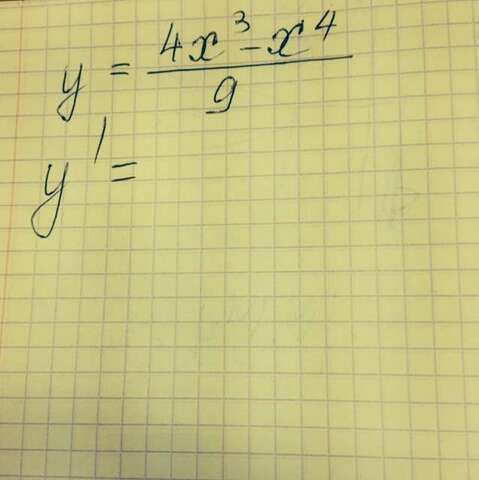 y = (4x³ - x⁴)/9
y' =